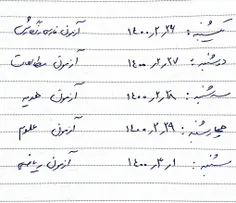 یکشنبه: ۱۴۰۰٫۲٫۲۶ آزمون فارسی نگارش
دوشنبه: ۱۴۰۰٫۲٫۲۷ آزمون مطالعات
سه‌شنبه: ۱۴۰۰٫۲٫۲۸ آزمون هدیه
چهارشنبه: ۱۴۰۰٫۲٫۲۹ آزمون علوم
شنبه: ۱۴۰۰٫۳٫۱ آزمون ریاضی